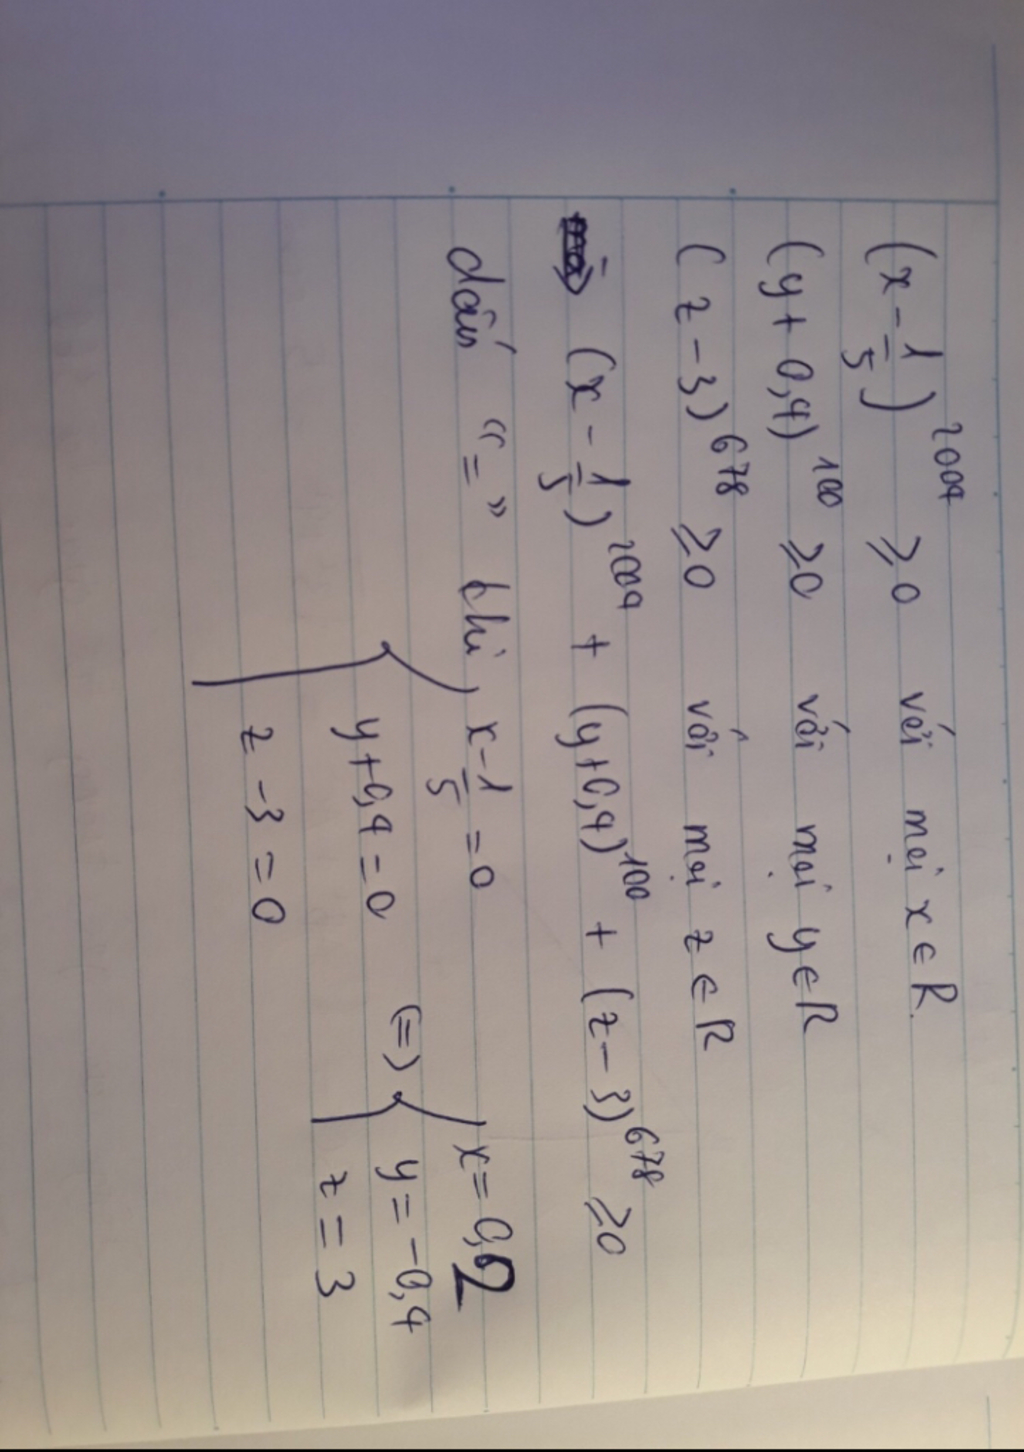 (x - 1/5)^2004 ≥ 0 với mọi x ∈ R
(y + 0,4)^100 ≥ 0 với mọi y ∈ R
(z - 3)^678 ≥ 0 với mọi z ∈ R
=> (x - 1/5)^2004 + (y + 0,4)^100 + (z - 3)^678 ≥ 0
dấu "=" khi { x - 1/5 = 0
y + 0,4 = 0 (=) { x = 0,2
z - 3 = 0 y = -0,4
z = 3